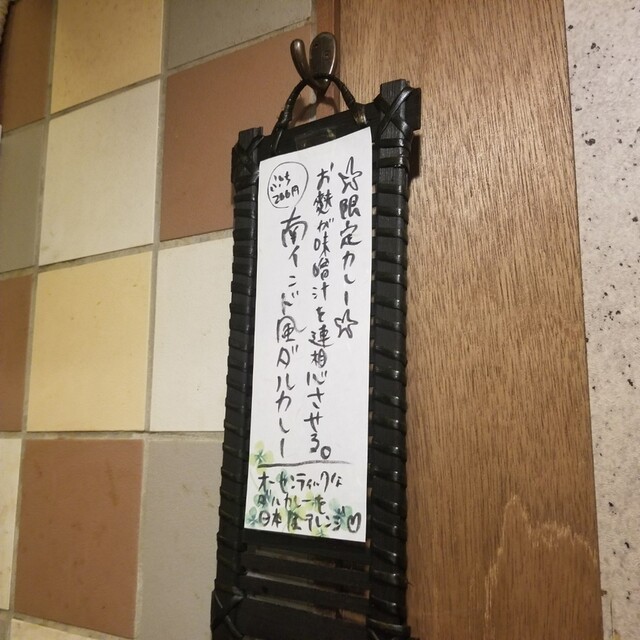 ☆限定カレー☆
お麩が味噌汁を連想させる。
南インド風ダルカレー
オーセンティックな
ダルカレーを
日本風アレンジ♡